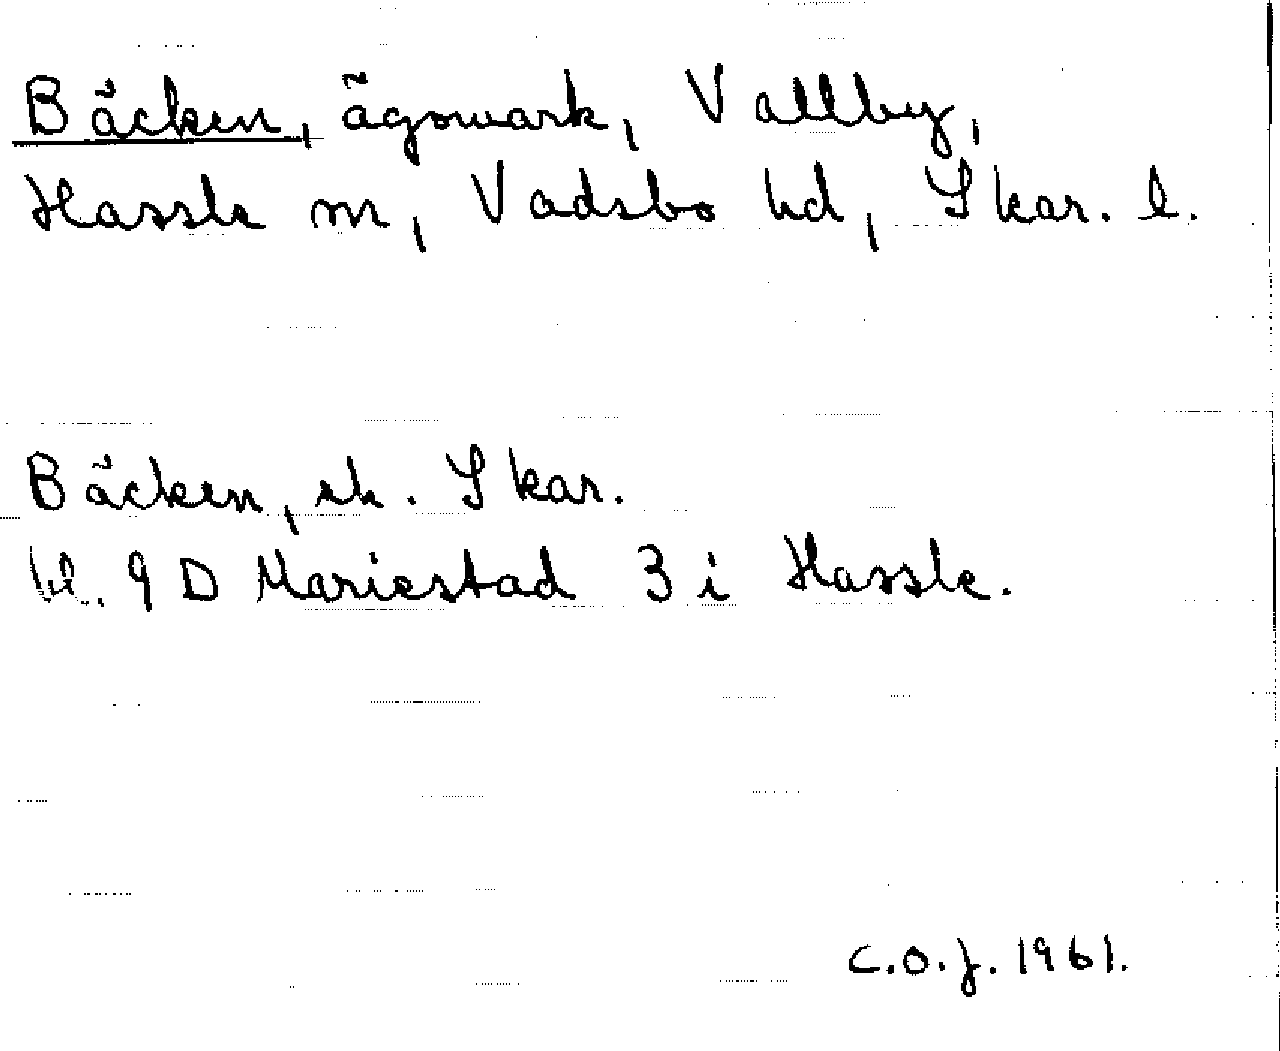 Bäcken, ägomark, Vallby,
Hassle sn, Vadsbo hd, Skar. l.
Bäcken, ek. Skar.
bl. 9 D Mariestad 3 i Hassle.
C.O.J. 1961.